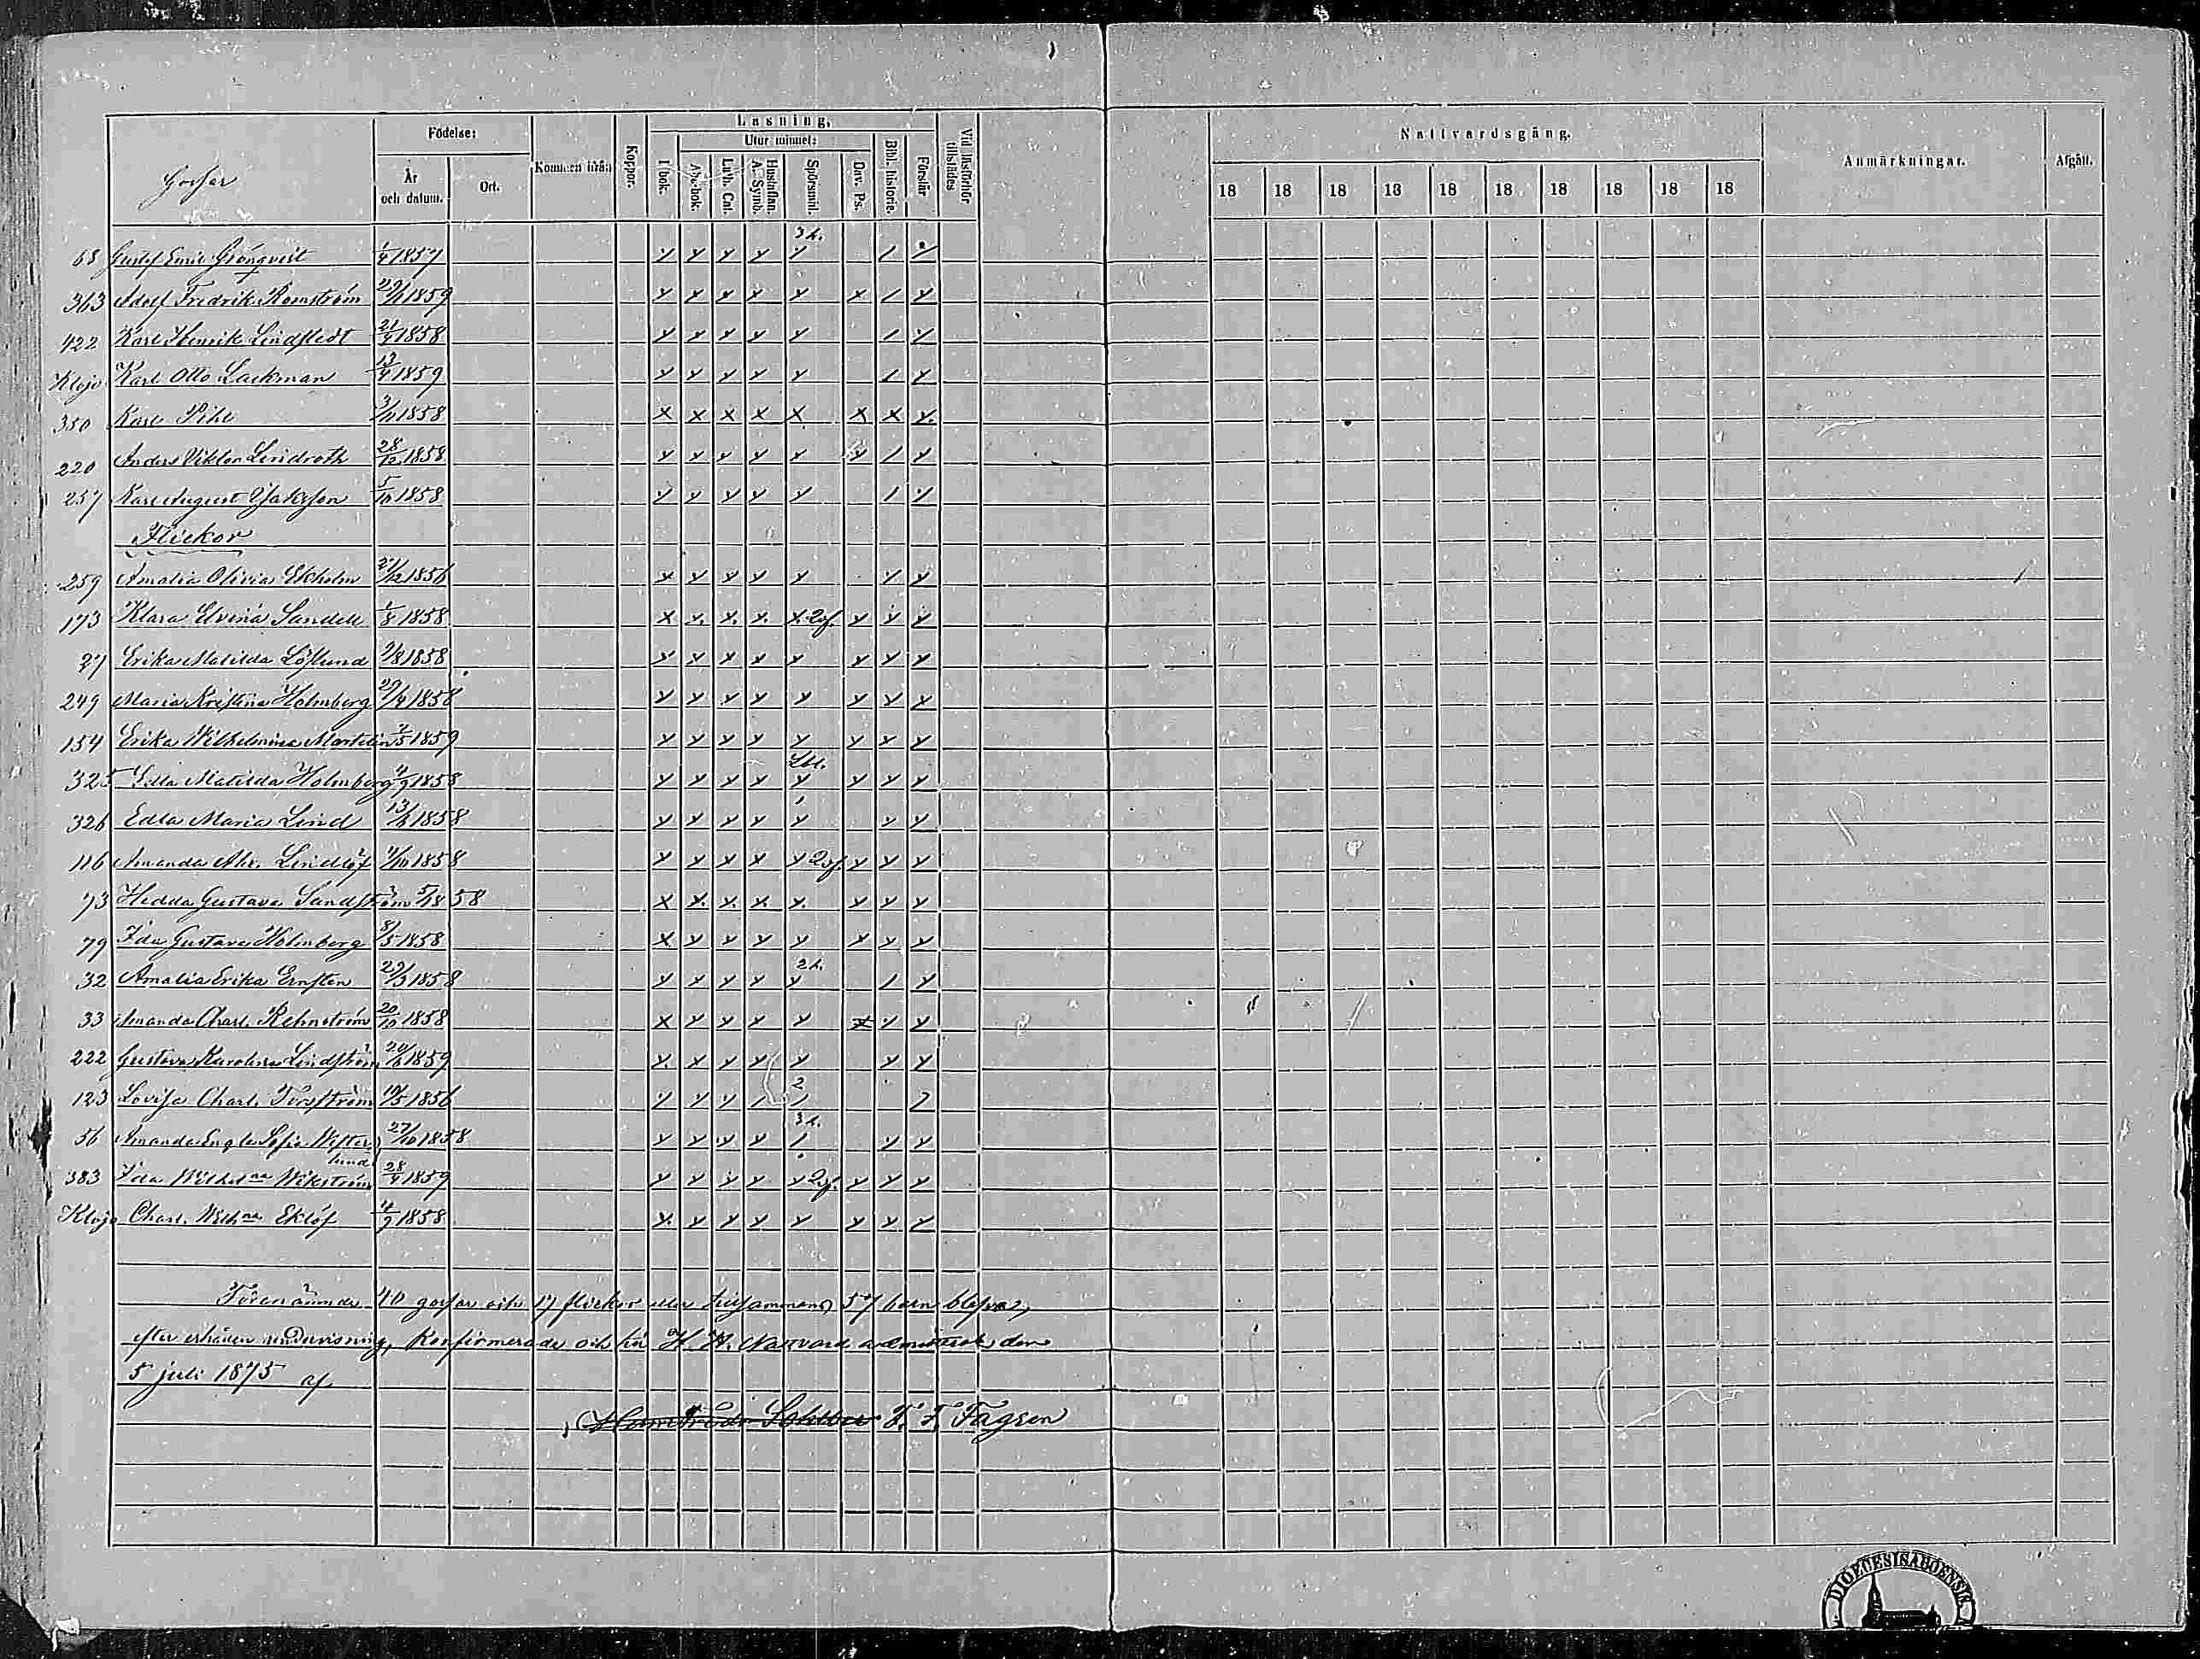 Gossar
Födelse:
År och datum.
Ort.
Kommen ifrån
Koppor.
Läsning.
I bok.
Utur minnet:
Abc-bok.
Luth. Cat.
Hustaflan. A. Symb.
Spörsmål.
Dav. Ps.
Bibl. historie.
Förstår
Vid husförhör tillstädes
Nattvardsgång.
18 18 18 18 18 18 18 18 18 18
Anmärkningar.
Afgått.
3 h.
68 Gustaf Emil Grönqvist 1/4 1857
363 Adolf Fredrik Romström 1859
422 Karl Henrik Lindstedt 21/4 1858
Klojo Karl Otto Lackman 13/4 1859
350 Karl Pihl 3/11 1858
220 Anders Viktor Lindroth 28/12 1858
257 Karl August Isaksson 5/10 1858
Flickor
259 Amalia Olivia Ekholm 21/12 1856
173 Klara Elvina Sandell 1/8 1858
27 Erika Matilda Löflund 9/8 1858
249 Maria Kristina Holmberg 29/4 1858
154 Erika Wilhelmina Martelin 2/5 1859
325 Edla Matilda Holmberg 4/9 1858
326 Edla Maria Lind 13/6 1858
116 Amanda Lindlöf /10 1858
73 Hedda Gustava Sandström 3/5 1858
79 Ida Gustava Holmberg 8/5 1858
2 h.
32 Amalia Erika Ernsten 29/3 1858
33 Amanda Charl. Rehnström 20/10 1858
222 Gustava Karolina Lindström 20/6 1859
2
123 Lovisa Charl. Törnström 10/5 1856
3 h.
56 Amanda Engla Sofia Wester- 27/10 1858
lund
383 Ida Wilhel:na Wikström 28/4 1859
Klojo Charl. Wilh:na Eklöf 4/9 1858
Förenämnde 40 gossar och 17 flickor eller tillsammans 57 barn blefvo,
efter erhållen undervisning, Konfirmerade och till H. H. Nattvard admitterade den
5 juli 1875 af
F. F. Fagrén
DIOECESIS ABOENSIS